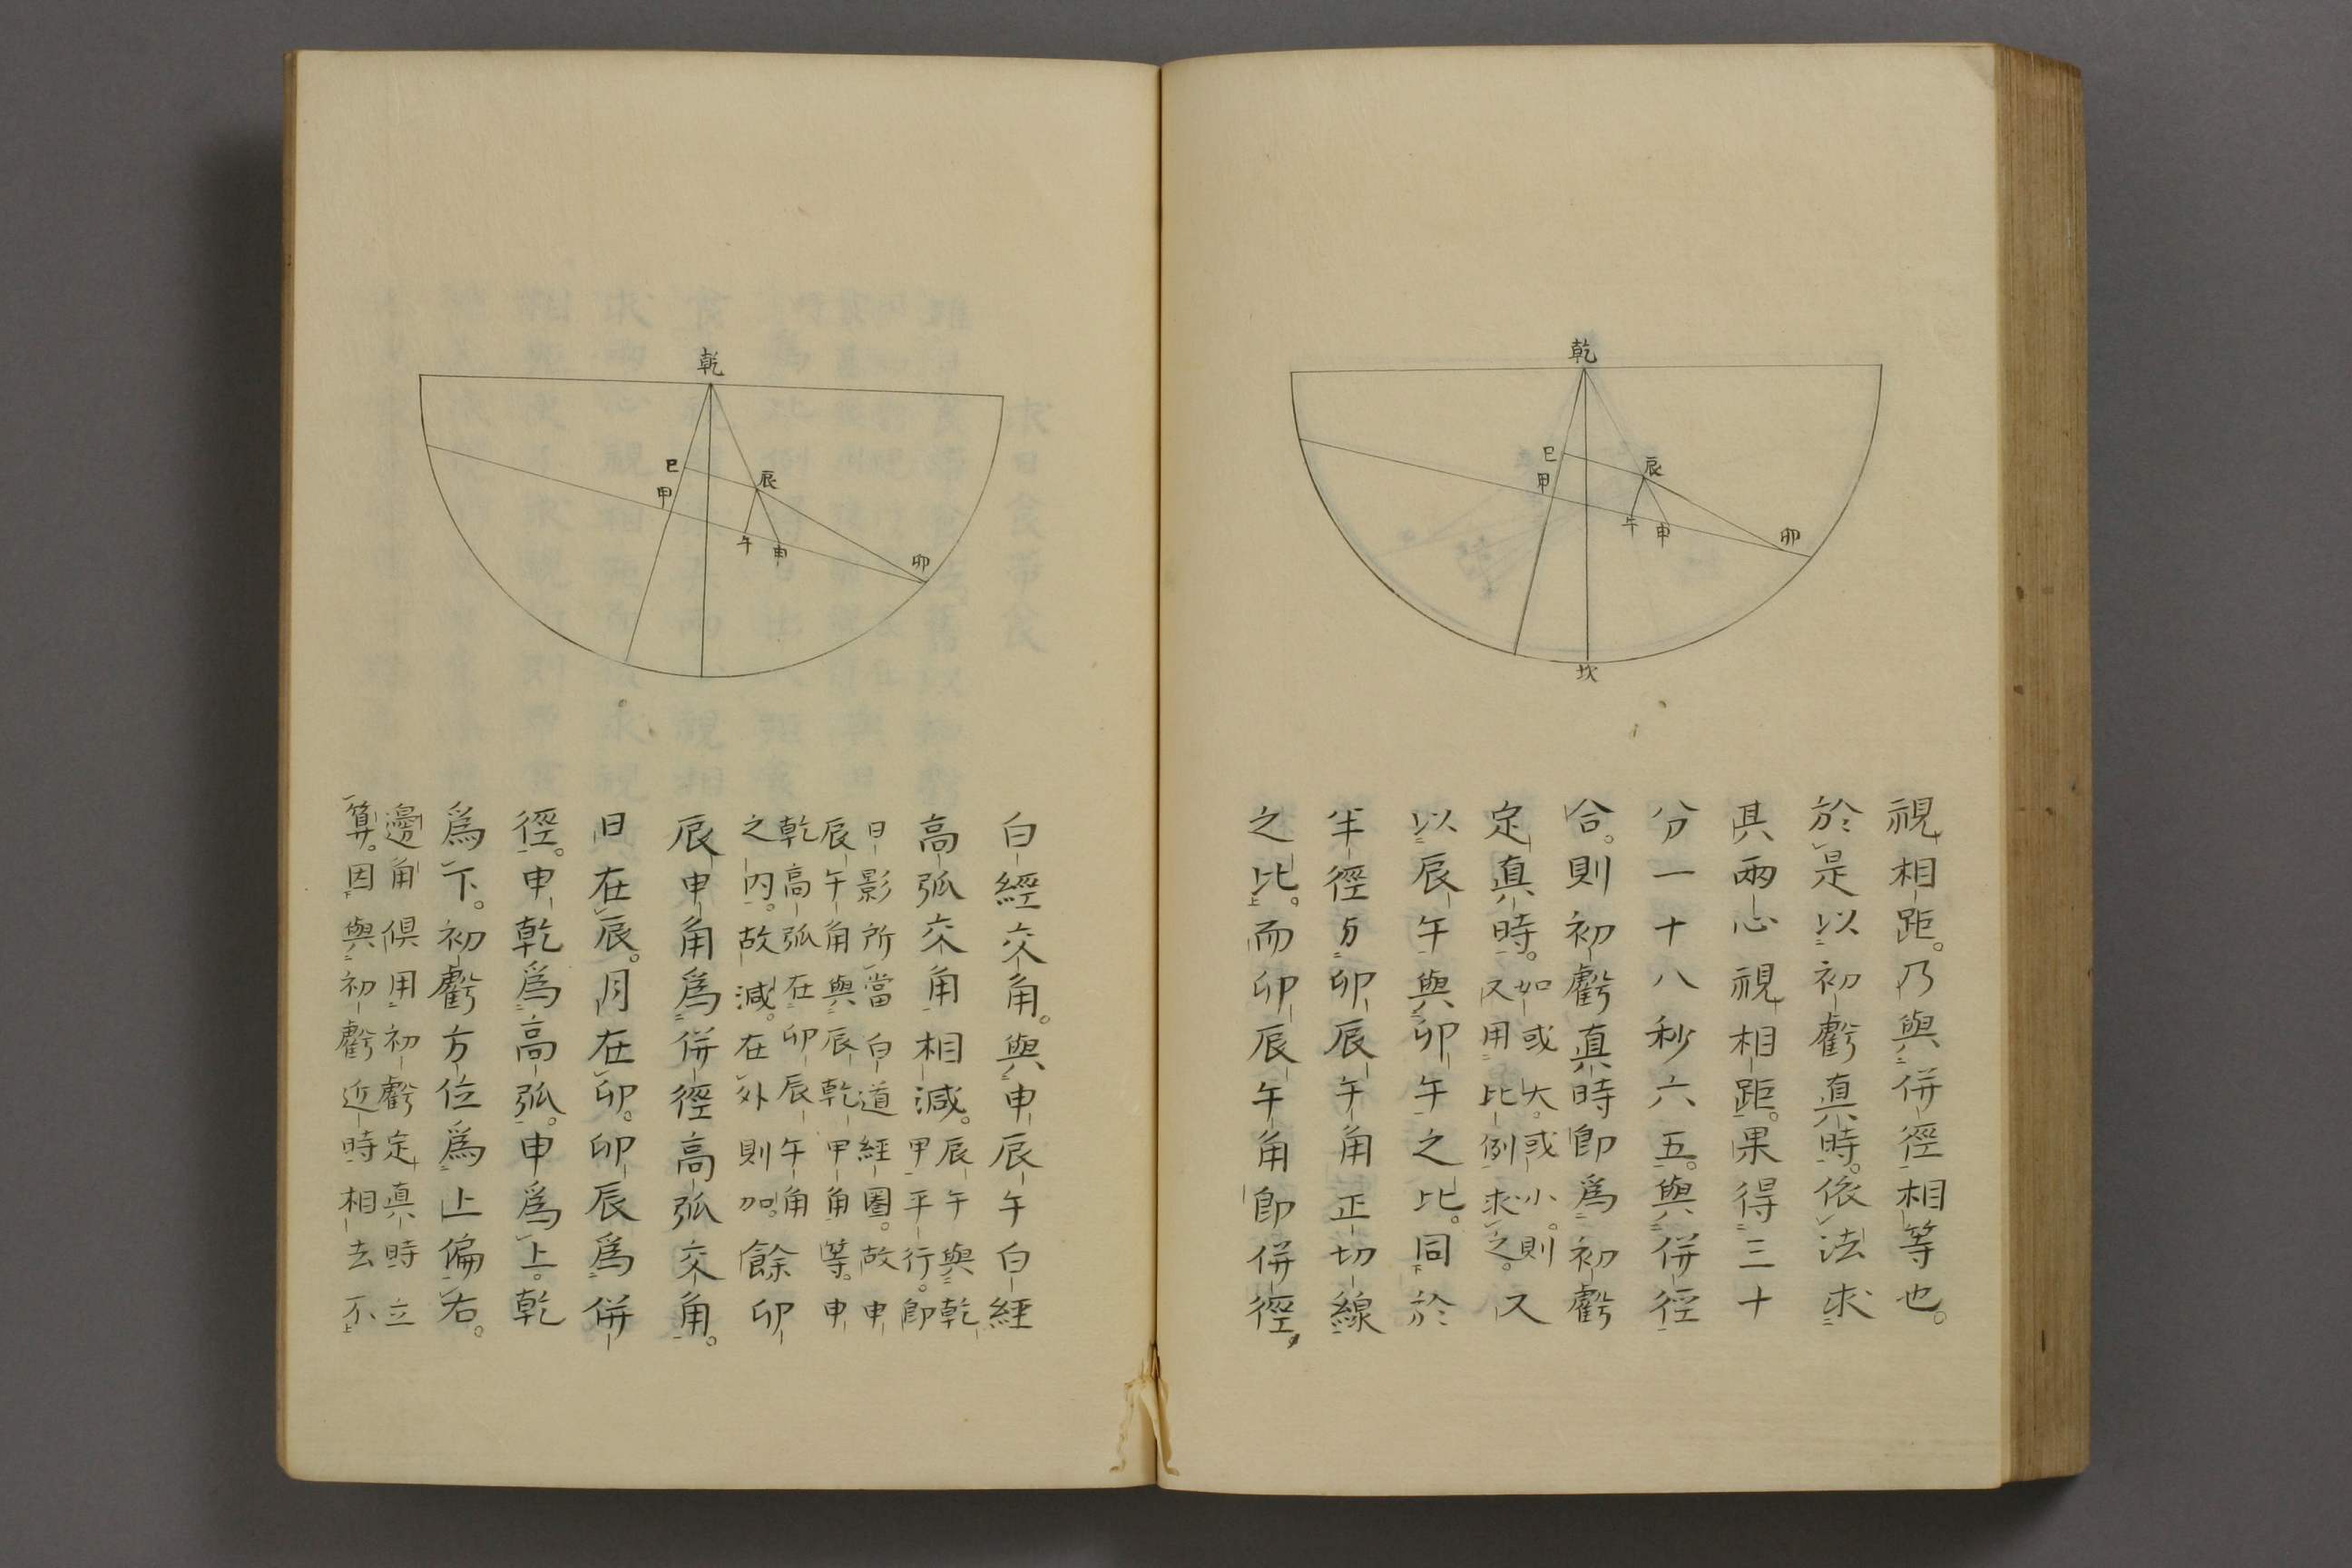 乾
巳
甲
辰
午
申
卯
坎
視相距。乃與併徑相等也。
於是以初虧真時。依法求
其兩心視相距。果得三十
分一十八秒六五。與併徑
合。則初虧真時即爲初虧
定真時。
如或大。或小。則
又用比例求之。
又
以辰午與卯午之比。同於
半徑与卯辰午角正切線
之比。而卯辰午角即併徑。
乾
巳
甲
辰
午
申
卯
白經交角。與申辰午白經
高弧交角相減。
辰午與乾
甲平行。即
日影所當白道經圈。故申
辰午角與辰乾甲角等。申
乾高弧在卯辰午角
之內。故減。在外則加。
餘卯
辰申角爲併徑高弧交角。
日在辰。月在卯。卯辰爲併
徑。申乾爲高弧。申爲上。乾
爲下。初虧方位爲上偏右。
邊角俱用初虧定真時立
算。因與初虧近時相去不